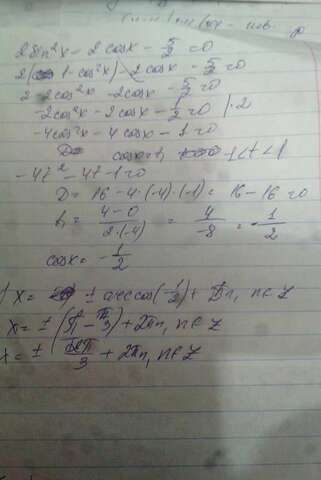 2sin²x - 2cosx - 5/2 = 0
2(1-cos²x) - 2cosx - 5/2 = 0
2-2cos²x - 2cosx - 5/2 = 0
-2cos²x - 2cosx - 1/2 = 0 | ·2
-4cos²x - 4cosx - 1 = 0
cosx = t, -1<t<1
-4t² - 4t - 1 = 0
D = 16 - 4·(-4)·(-1) = 16 - 16 = 0
t₁ = (4-0)/(2·(-4)) = 4/-8 = -1/2
cosx = -1/2
x = ± arccos(-1/2) + 2πn, n∈Z
x = ± (π - π/3) + 2πn, n∈Z
x = ± 2π/3 + 2πn, n∈Z